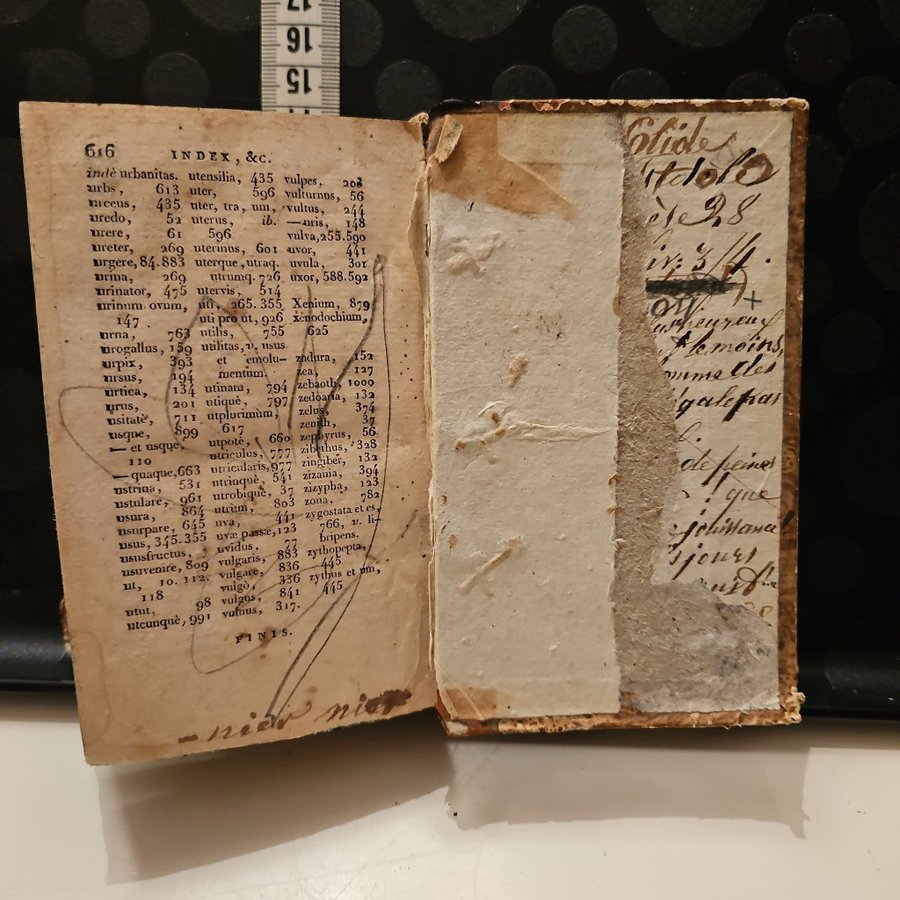 17
16
15
616 INDEX, &c.
indè urbanitas.
urbs, 613
urceus, 435
uredo, 52
urere, 61
ureter, 269
urgere, 84. 883
urina, 269
urinator, 475
urinum ovum,
147
urna, 763
urogallus, 159
urpix, 393
ursus, 194
urtica, 134
urus, 201
usitatè, 711
usque, 899
— et usque,
110
— quaque, 663
ustrina, 531
ustulare, 961
usura, 864
usurpare, 645
usus, 345. 355
ususfructus,
usuvenire, 809
ut, 10. 112.
118
utut, 98
utcunquè, 991
utensilia, 435
uter, 596
uter, tra, um,
uterus, ib.
596
uterinus, 601
uterque, utraq.
utrumq. 726
utervis, 514
uti, 265. 355
uti pro ut, 926
utilis, 755
utilitas, v. usus
et emolu-
mentum.
utinam, 794
utiquè, 797
utplurimùm,
617
utpotè, 660
utriculus, 777
utricularis, 977
utrinquè, 541
utrobiquè, 37
utrùm, 803
uva, 441
uvæ passæ, 123
uvidus, 77
vulgaris, 883
vulgare, 836
vulgò, 336
vulgus, 841
vulnus, 317.
vulpes, 203
vulturnus, 56
vultus, 244
—uris, 148
vulva, 255. 590
uvor, 441
uvula, 301
uxor, 588. 592
Xenium, 879
xenodochium,
625
zadura, 152
zea, 127
zebaoth, 1000
zedoaria, 132
zelus, 374
zenith, 37
zephyrus, 56
zibethus, 328
zingiber, 132
zizania, 394
zizypha, 123
zona, 782
zygostata et es,
766, v. li-
bripens.
zythopepta,
445
zythus et um,
445
FINIS.
— nier nier
3/4
+
ou
lemoins,
des
galepas
de peines
que
jouissance
jours